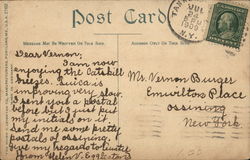 Post Card
MESSAGE MAY BE WRITTEN ON THIS SIDE.
ADDRESS ONLY ON THIS SIDE.
JUL
N.Y.
Dear Vernon:
I am now
enjoying the Catskill
breezes.
improving very slow.
I sent you a postal
before but I just put
my initials on it.
Send me some pretty
postals of ossining. I
Give my regards to Auntie
From Helen V.
Mr. Vernon Burger
Emwilton Place
Ossining
New York